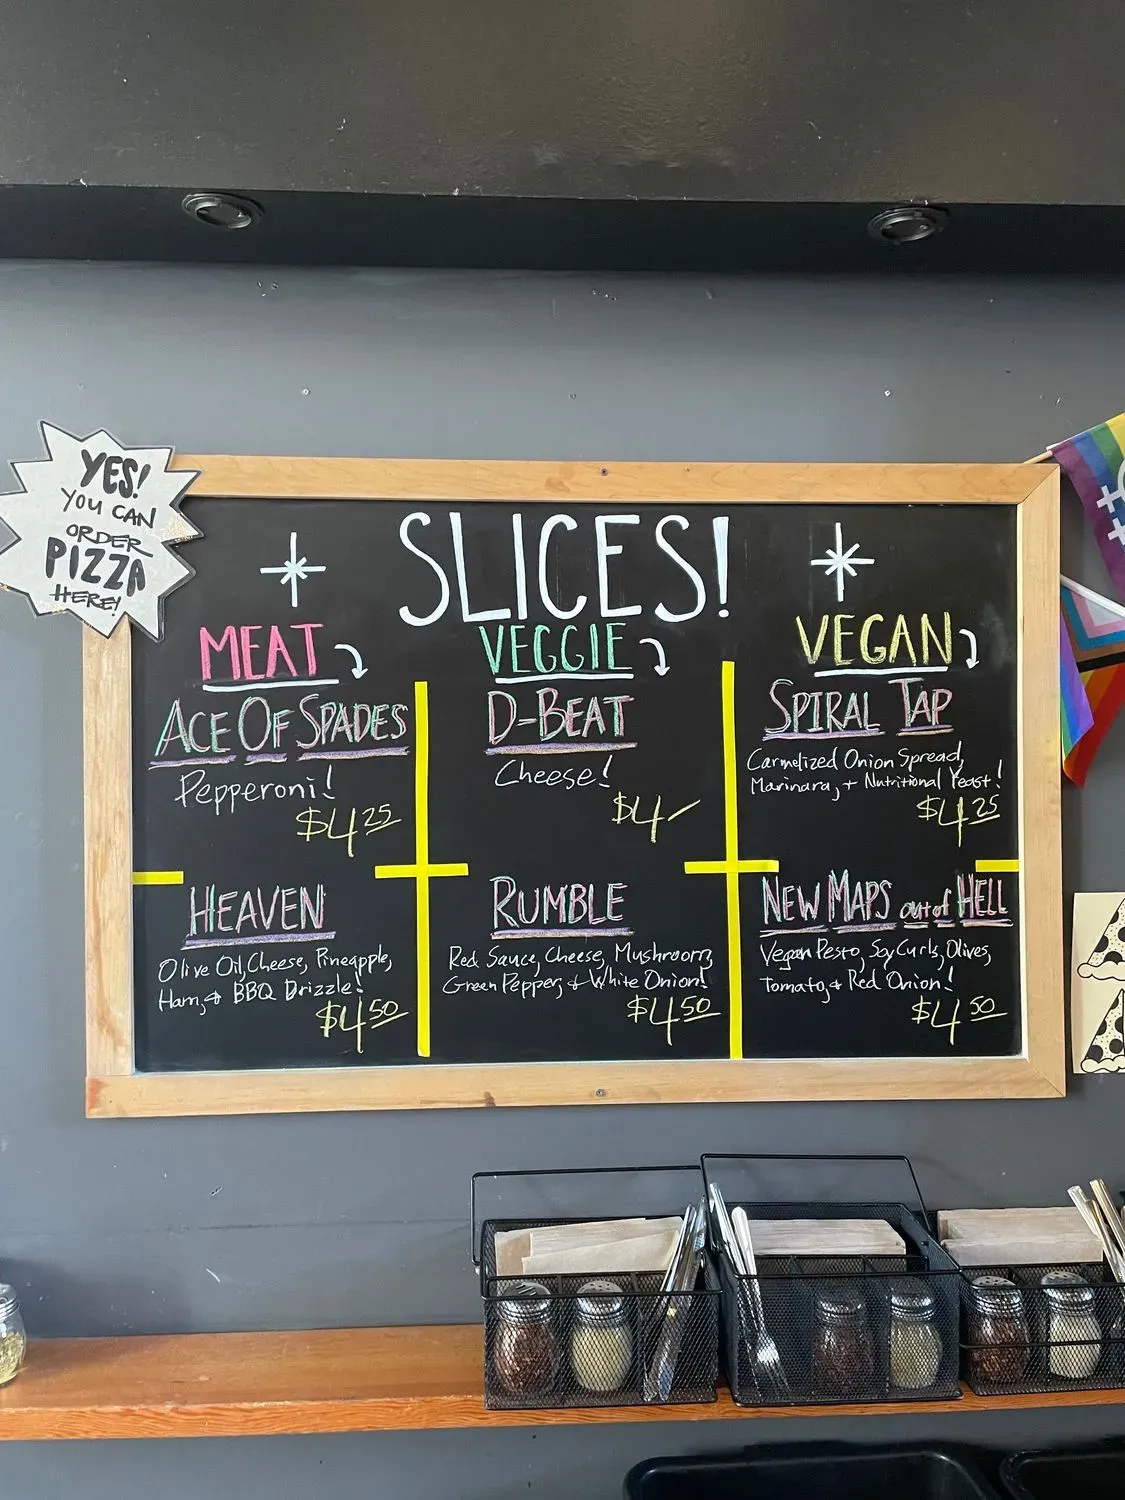 YES!
YOU CAN
ORDER
PIZZA
HERE!
SLICES!
MEAT
ACE OF SPADES
Pepperoni!
$4 25
HEAVEN
Olive Oil, Cheese, Pineapple,
Ham, + BBQ Drizzle!
$4 50
VEGGIE
D-BEAT
Cheese!
$4 –
RUMBLE
Red Sauce, Cheese, Mushroom,
Green Pepper, + White Onion!
$4 50
VEGAN
SPIRAL TAP
Carmelized Onion Spread,
Marinara, + Nutritional Yeast!
$4 25
NEW MAPS out of HELL
Vegan Pesto, Soy Curls, Olives,
Tomato, + Red Onion!
$4 50